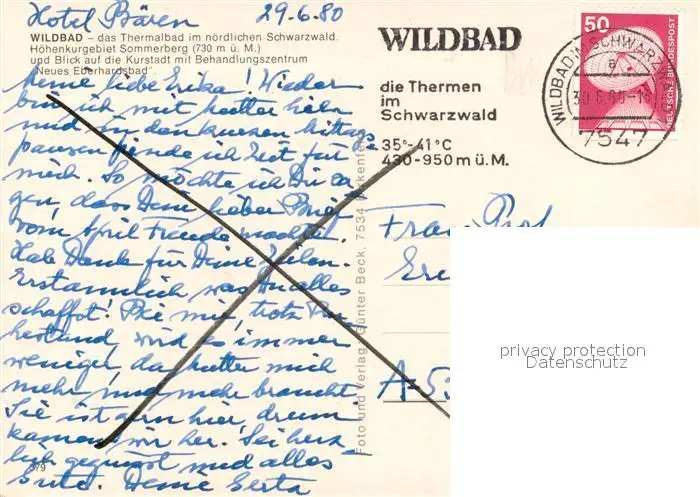 Hotel Bären 29.6.80
WILDBAD – das Thermalbad im nördlichen Schwarzwald.
Höhenkurgebiet Sommerberg (730 m ü. M.)
und Blick auf die Kurstadt mit Behandlungszentrum
"Neues Eberhardsbad"
Meine liebe Erika! Wieder
bin ich mit Mutter hier
und in den kurzen Mittags=
pausen finde ich Zeit für
mich. So möchte ich Dir sa=
gen, dass Dein lieber Brief
vom April Freude machte.
Hab Dank für Deine Zeilen.
Erstaunlich was Du alles
schaffst! Bei mir, trotz Ru=
hestand, wird es immer
weniger, da Mutter mich
mehr und mehr braucht.
Sie ist gern hier, drum
kamen wir her. Sei herz=
lich gegrüsst und alles
Gute. Deine Gerta
379
Foto und Verlag Günter Beck, 7534 Birkenfeld
WILDBAD
die Thermen
im
Schwarzwald
35°-41°C
430-950 m ü. M.
50
DEUTSCHE BUNDESPOST
WILDBAD IM SCHWARZW
a
30.6.80-16
7547
Frau Prof.
A-5
privacy protection
Datenschutz